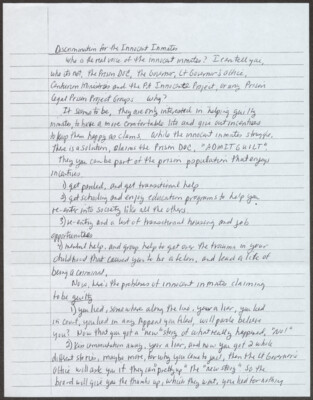 Discrimination for the Innocent Inmates
Who is the real voice of the innocent inmates? I can tell you,
who its not, The Prison DOC, The Governor, Lt Governor's office,
and the PA Innocence Project, or any Prison
Legal Prison Project Groups. Why?
It seems to be, they are only interested in helping guilty
inmates, to have a more comfortable life and give out incentives
to keep them happy as clams. While the innocent inmates struggle.
There is a solution, claims the Prison DOC, "ADMIT GUILT".
They you can be part of the prison population that enjoys
incentives.
1) get paroled, and get transitional help
2) get schooling and enjoy education programs to help you
re-enter into society like all the others.
3) re-entry and a lot of transitional housing and job
opportunities
4) mental help, and group help to get over the trauma in your
childhood that caused you to be a felon, and lead a life of
being a criminal.
Now, here's the problems of innocent inmates claiming
to be guilty
1) you lied, somewhere along the line, your a liar, you lied
in court, you lied in any Appeal you filed, will people believe
you? Now that you got a "new" story of what really happened, "NO!"
2) Your commutation away, your a liar, and now you got 2 whole
different stories, maybe more, for why you came to jail, then the Lt Governor's
office will ask you if they can the "new story" so the
board will give you the thanks up, which they want, you lied for nothing